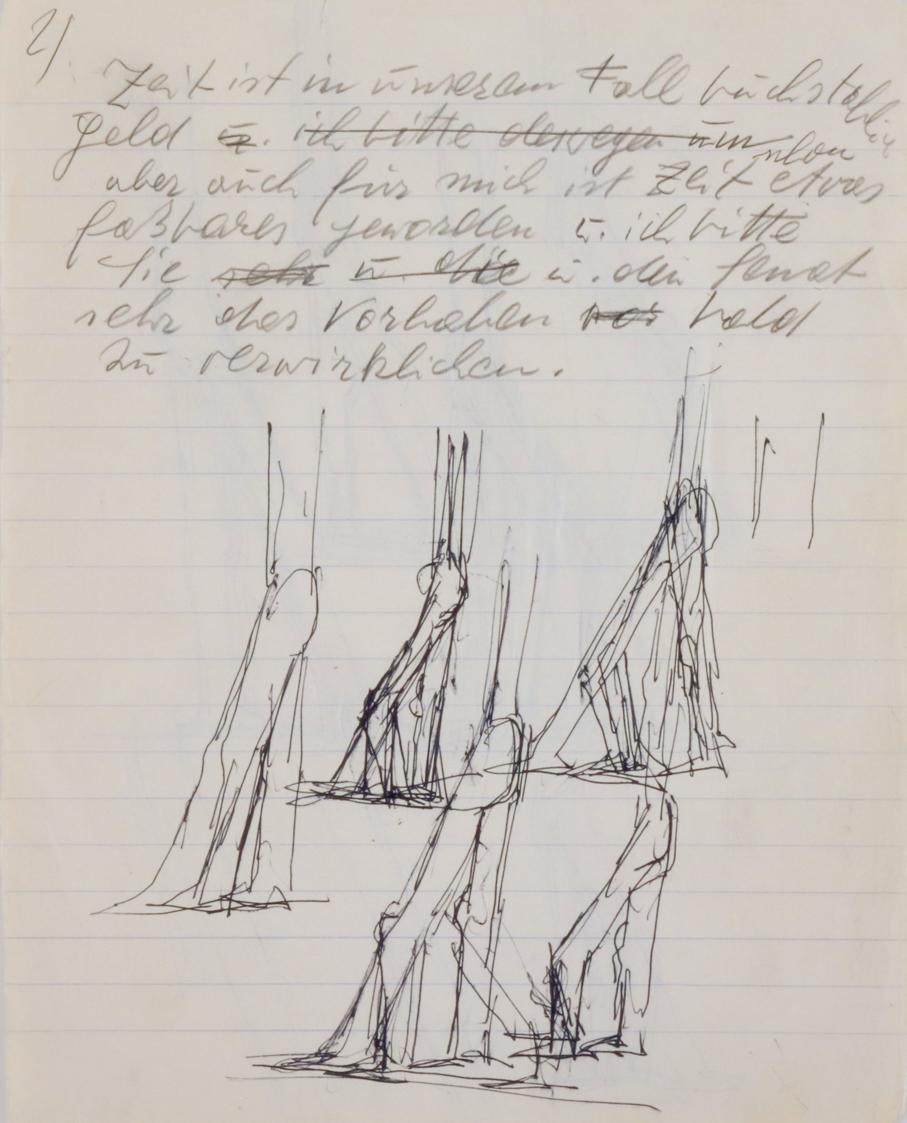 2)
Zeit ist in unserem Fall buchstäblich
Geld u. ich bitte deswegen um
aber auch für mich ist Zeit etwas
faßbares geworden u. ich bitte
Sie sehr u die u. den Senat
sehr das Vorhaben bald
zu verwirklichen.